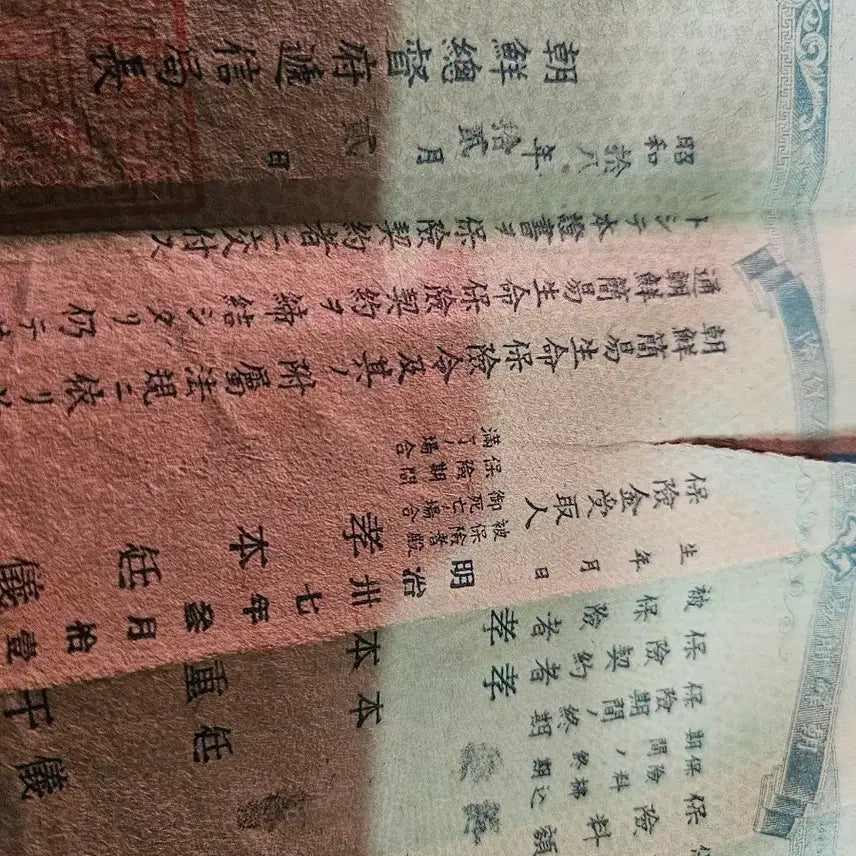 保險料額
保險料拂込
期間ノ終期
保險期間ノ終期
保險契約者 孝本任儀
被保險者 孝本重千
生年月日 明治卅七年參月拾壹
保險金受取人
被保險者殿
御死亡場合
保險期間
滿了ノ場合
孝本任儀
朝鮮簡易生命保險令及其ノ附屬法規ニ依リ
通朝鮮簡易生命保險契約ヲ締結シタリ仍テ
トシテ本證書ヲ保險契約者ニ交付ス
昭和拾八年拾貳月貳日
朝鮮總督府遞信局長